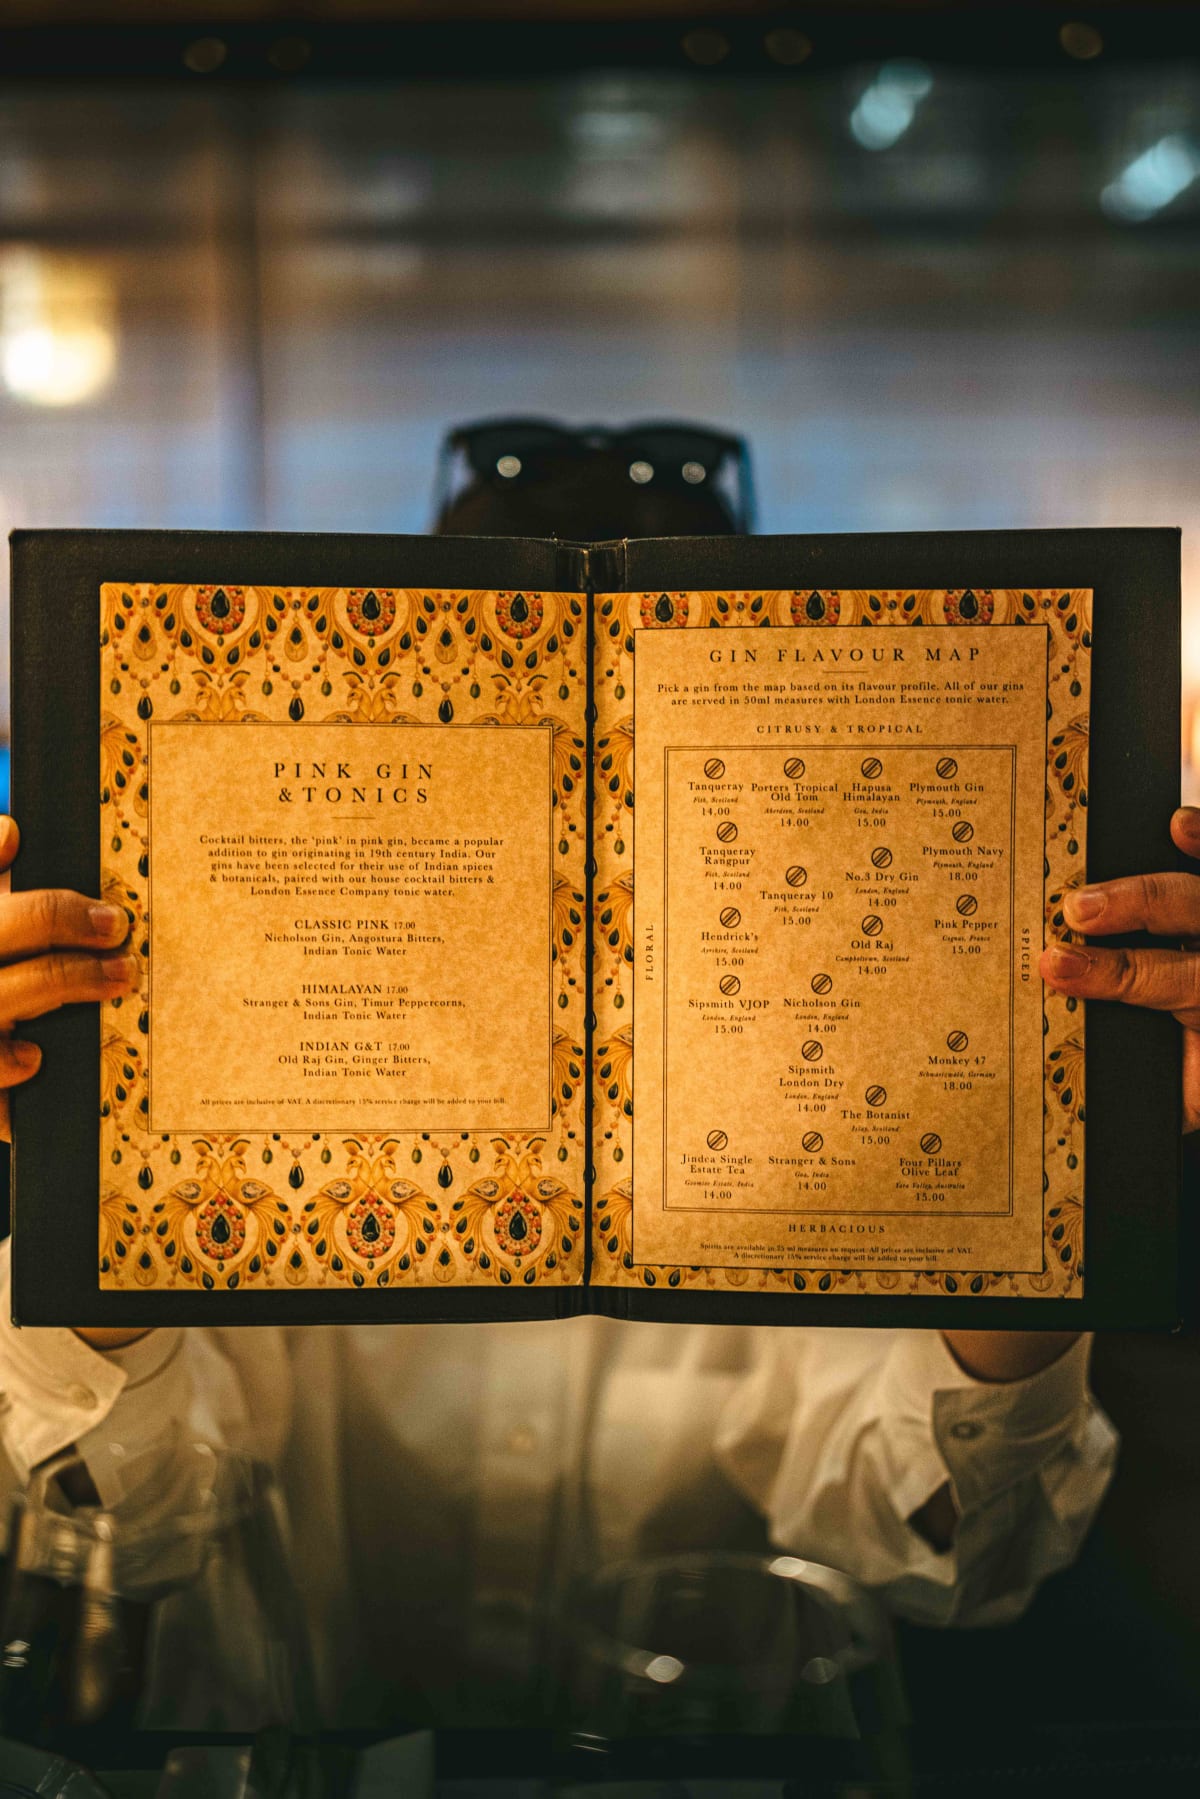 PINK GIN
& TONICS
Cocktail bitters, the 'pink' in pink gin, became a popular
addition to gin originating in 19th century India. Our
gins have been selected for their use of Indian spices
& botanicals, paired with our house cocktail bitters &
London Essence Company tonic water.
CLASSIC PINK 17.00
Nicholson Gin, Angostura Bitters,
Indian Tonic Water
HIMALAYAN 17.00
Stranger & Sons Gin, Timur Peppercorns,
Indian Tonic Water
INDIAN G&T 17.00
Old Raj Gin, Ginger Bitters,
Indian Tonic Water
All prices are inclusive of VAT. A discretionary 15% service charge will be added to your bill.
GIN FLAVOUR MAP
Pick a gin from the map based on its flavour profile. All of our gins
are served in 50ml measures with London Essence tonic water.
CITRUSY & TROPICAL
FLORAL
SPICED
Tanqueray
Fith, Scotland
14.00
Porters Tropical
Old Tom
Aberdeen, Scotland
14.00
Hapusa
Himalayan
Goa, India
15.00
Plymouth Gin
Plymouth, England
15.00
Tanqueray
Rangpur
Fith, Scotland
14.00
Tanqueray 10
Fith, Scotland
15.00
No.3 Dry Gin
London, England
14.00
Plymouth Navy
Plymouth, England
18.00
Hendrick's
Ayrshire, Scotland
15.00
Old Raj
Campbeltown, Scotland
14.00
Pink Pepper
Cognac, France
15.00
Sipsmith VJOP
London, England
15.00
Nicholson Gin
London, England
14.00
Sipsmith
London Dry
London, England
14.00
Monkey 47
Schwarzwald, Germany
18.00
The Botanist
Islay, Scotland
15.00
Jindea Single
Estate Tea
Goomtee Estate, India
14.00
Stranger & Sons
Goa, India
14.00
Four Pillars
Olive Leaf
Yara Valley, Australia
15.00
HERBACIOUS
Spirits are available in 25 ml measures on request. All prices are inclusive of VAT.
A discretionary 15% service charge will be added to your bill.